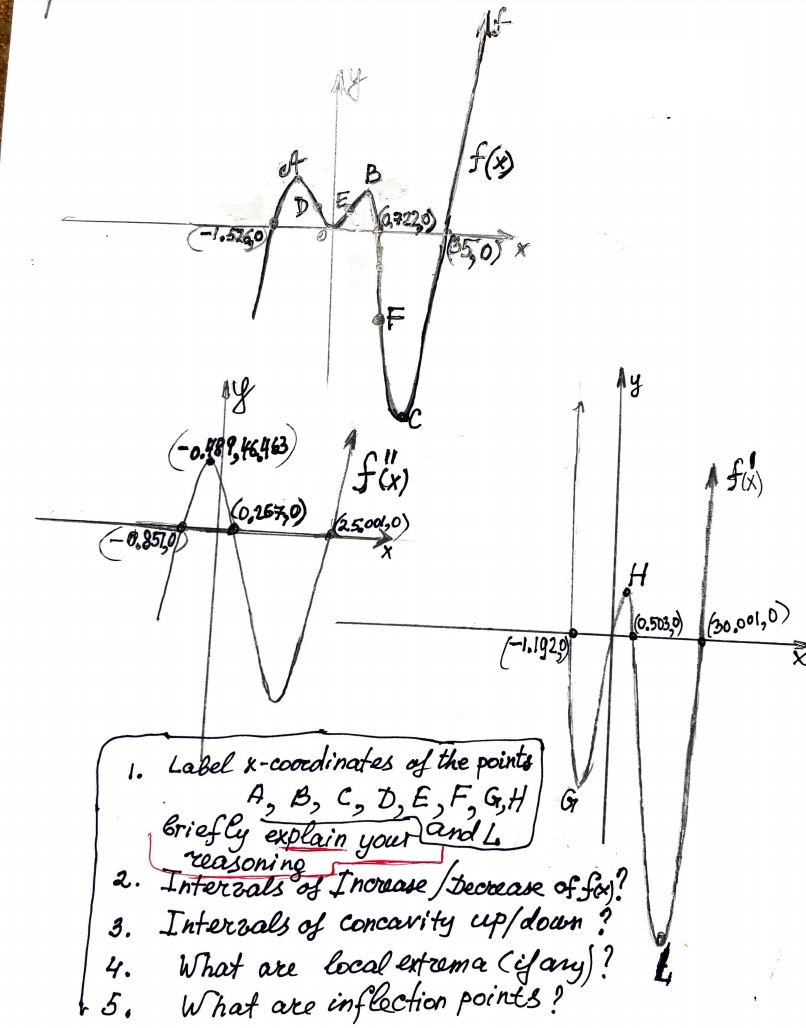 f
y
A
B
f(x)
D
E
(-1.526,0)
0
(0.722,0)
(35,0)
x
F
C
y
(-0.489,46.463)
f''(x)
(0.267,0)
(25.001,0)
(-0.851,0)
x
y
f'(x)
H
(0.503,0)
(30.001,0)
(-1.192,0)
x
G
L
1. Label x-coordinates of the points
A, B, C, D, E, F, G, H
and L
briefly explain your
reasoning
2. Intervals of Increase/Decrease of f(x)?
3. Intervals of concavity up/down ?
4. What are local extrema (if any)?
5. What are inflection points?